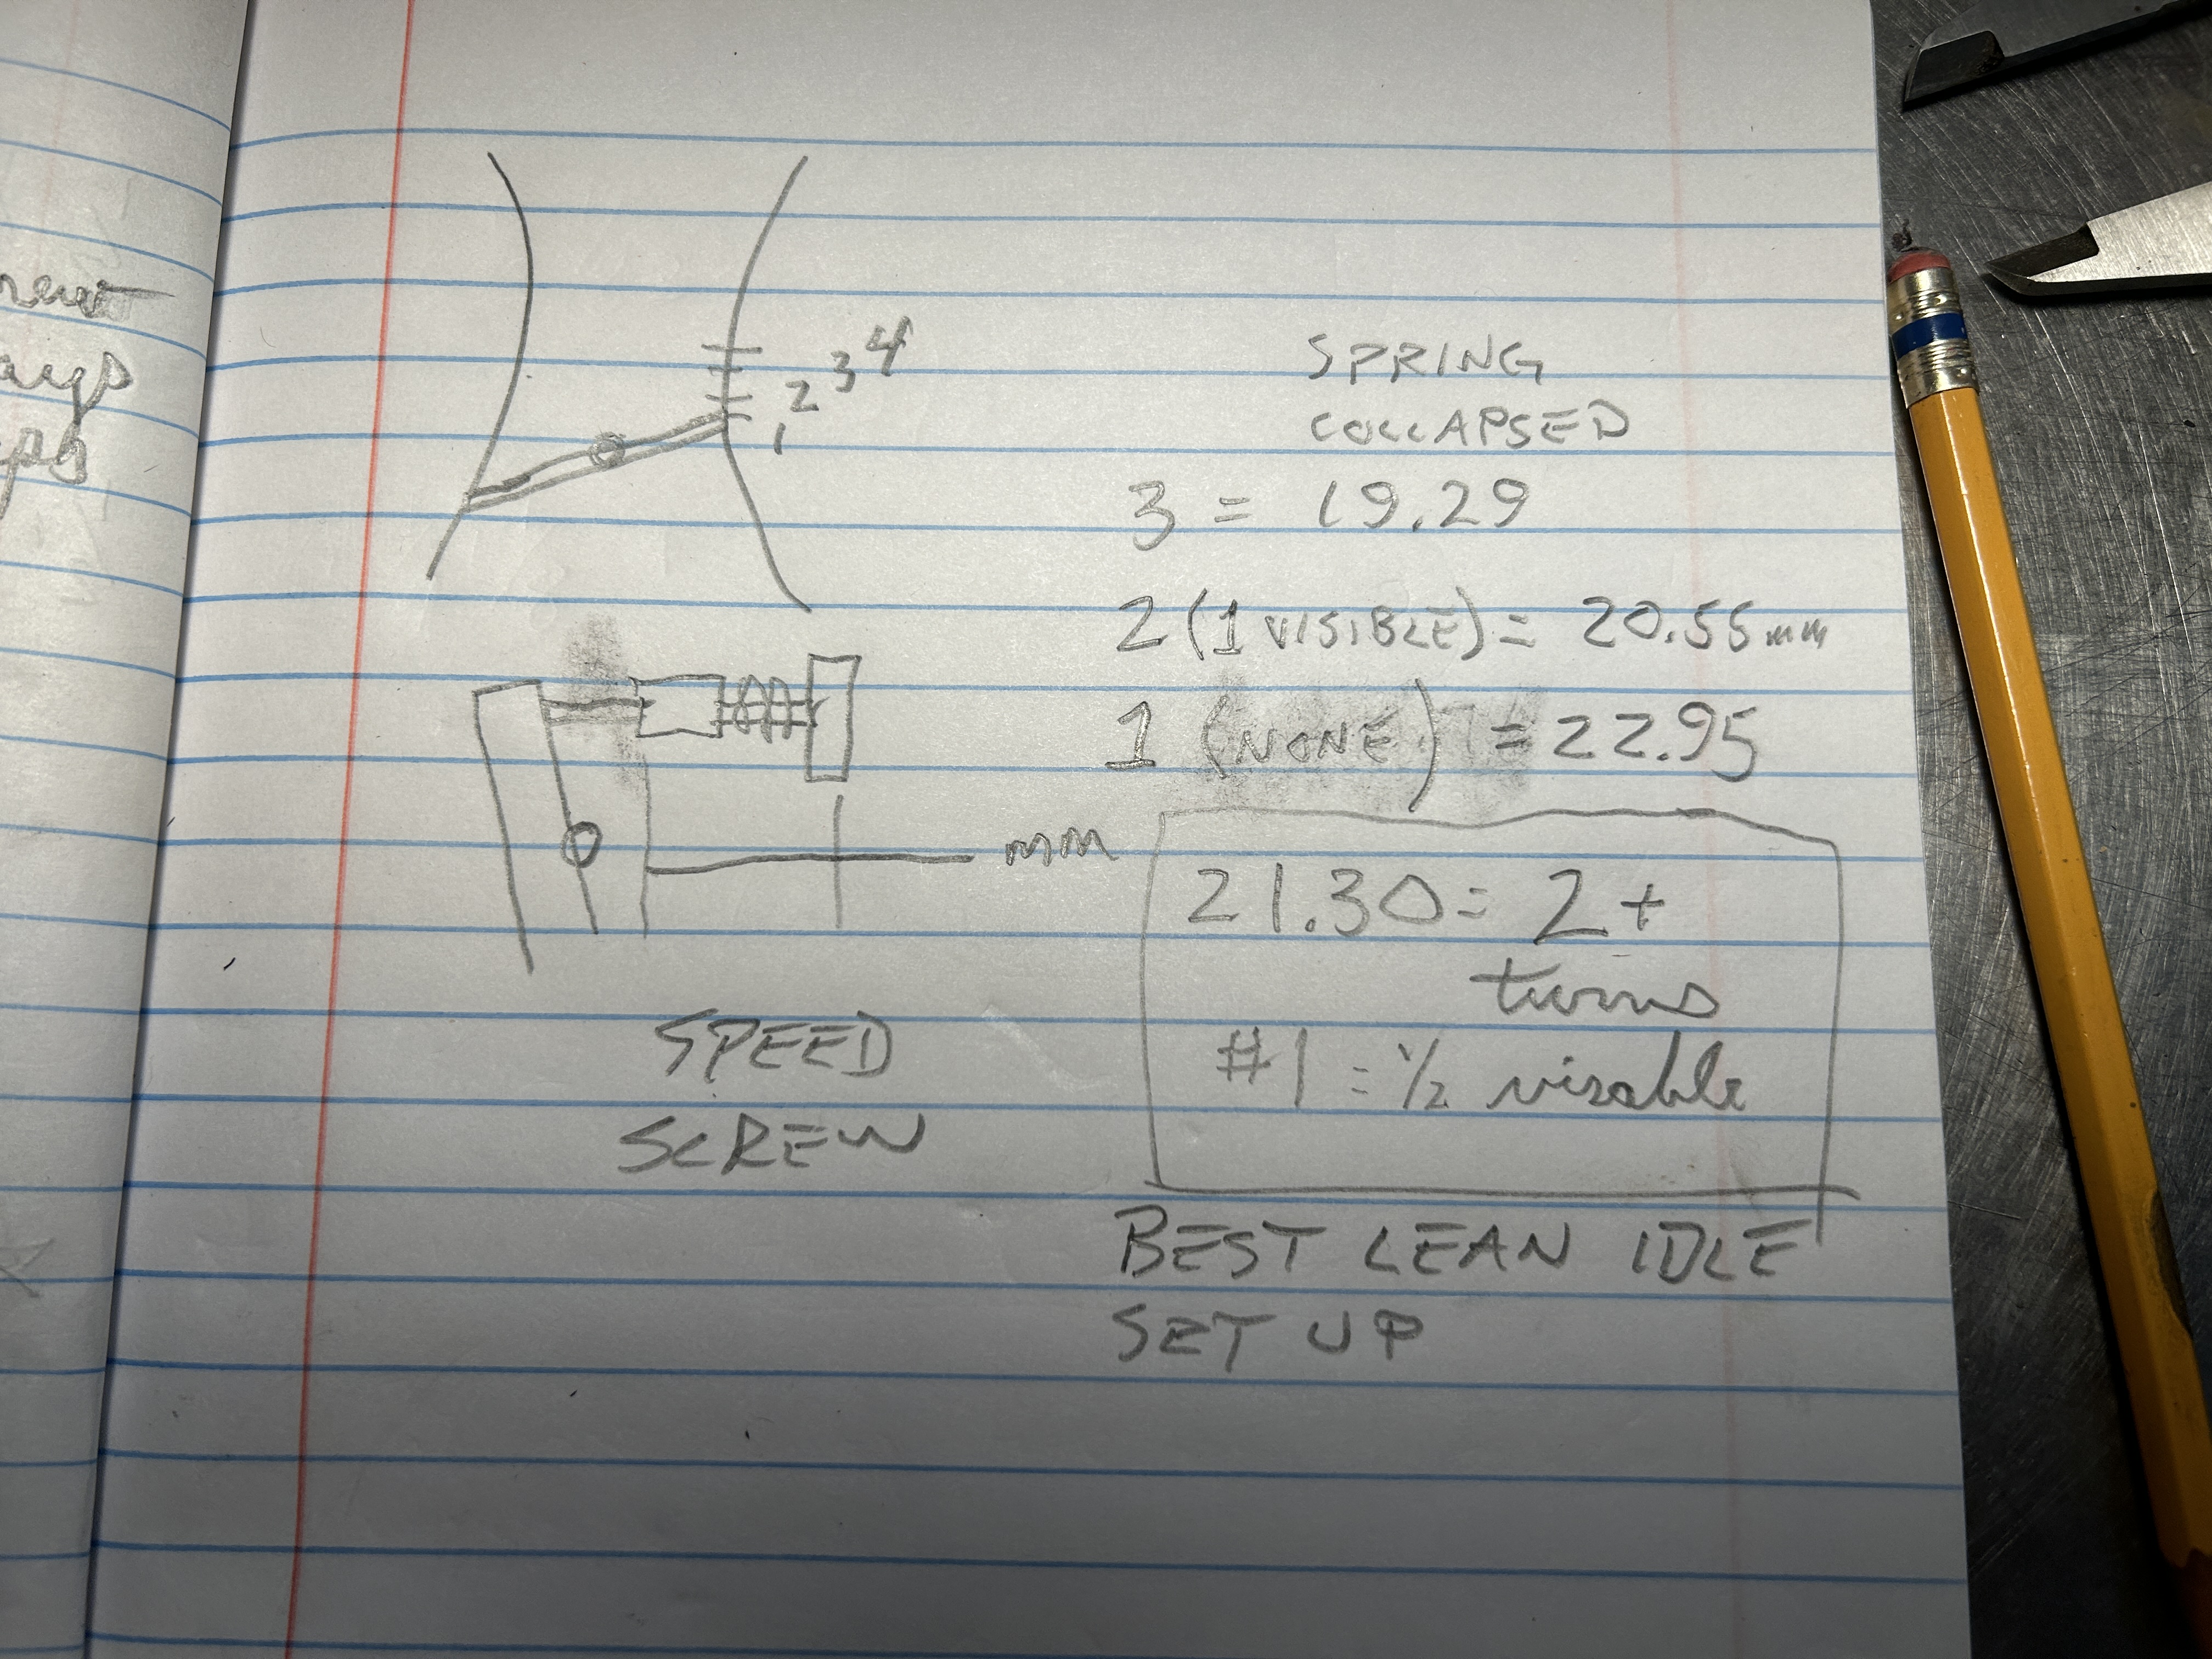 4
3
2
1
SPRING
COLLAPSED
3 = 19.29
2 (1 VISIBLE) = 20.55 mm
1 (NONE) = 22.95
mm
21.30 = 2 +
turns
#1 = 1/2 visable
SPEED
SCREW
BEST LEAN IDLE
SET UP